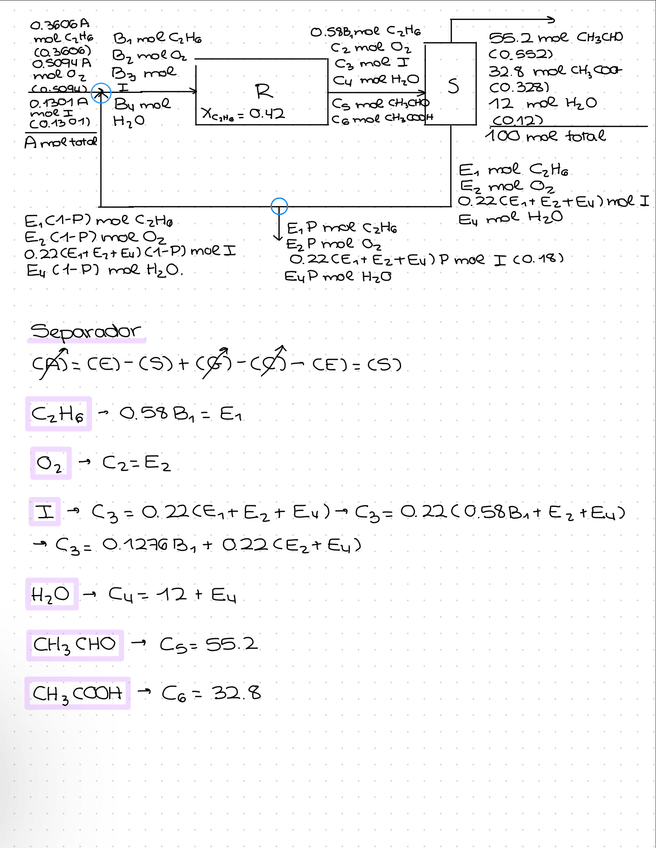 0.3606A
mol C₂H₆
(0.3606)
0.5094A
mol O₂
(0.5094)
0.1301A
mol I
(0.1301)
A mol total
B₁ mol C₂H₆
B₂ mol O₂
B₃ mol
I
B₄ mol
H₂O
R
X C₂H₆ = 0.42
0.58B₁ mol C₂H₆
C₂ mol O₂
C₃ mol I
C₄ mol H₂O
C₅ mol CH₃CHO
C₆ mol CH₃COOH
S
55.2 mol CH₃CHO
(0.552)
32.8 mol CH₃COO
(0.328)
12 mol H₂O
(0.12)
100 mol total
E₁ mol C₂H₆
E₂ mol O₂
0.22(E₁+E₂+E₄) mol I
E₄ mol H₂O
E₁(1-P) mol C₂H₆
E₂(1-P) mol O₂
0.22(E₁+E₂+E₄)(1-P) mol I
E₄(1-P) mol H₂O.
E₁P mol C₂H₆
E₂P mol O₂
0.22(E₁+E₂+E₄)P mol I (0.18)
E₄P mol H₂O
Separador
(A) = (E) - (S) + (G) - (C) → (E) = (S)
C₂H₆ → 0.58B₁ = E₁
O₂ → C₂ = E₂
I → C₃ = 0.22(E₁+E₂+E₄) → C₃ = 0.22(0.58B₁+E₂+E₄)
→ C₃ = 0.1276B₁ + 0.22(E₂+E₄)
H₂O → C₄ = 12 + E₄
CH₃CHO → C₅ = 55.2
CH₃COOH → C₆ = 32.8